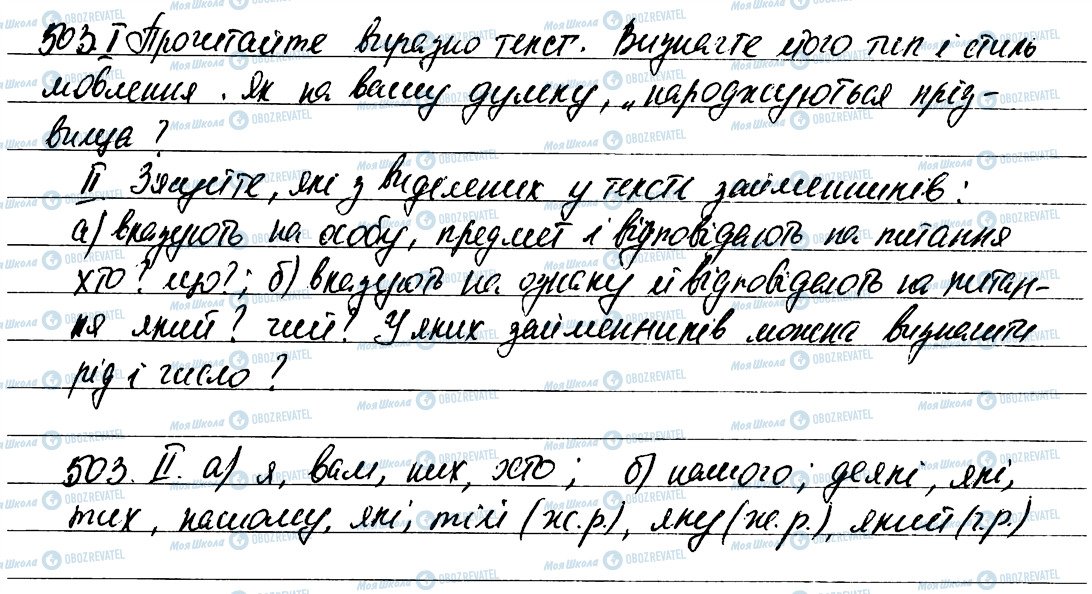 503. I Прочитайте виразно текст. Визначте його тип і стиль
мовлення. Як на вашу думку, „народжуються прізвища?
II. З'ясуйте, які з виділених у тексті займенників:
а) вказують на особу, предмет і відповідають на питання
хто? що?; б) вказують на ознаку й відповідають на питан-
ня який? чий? У яких займенників можна визначити
рід і число?
503. II. а) я, вам, них, хто; б) нашого; деякі, які,
тих, нашому, які, тій (ж.р.), яку (ж.р.), який (ч.р.)